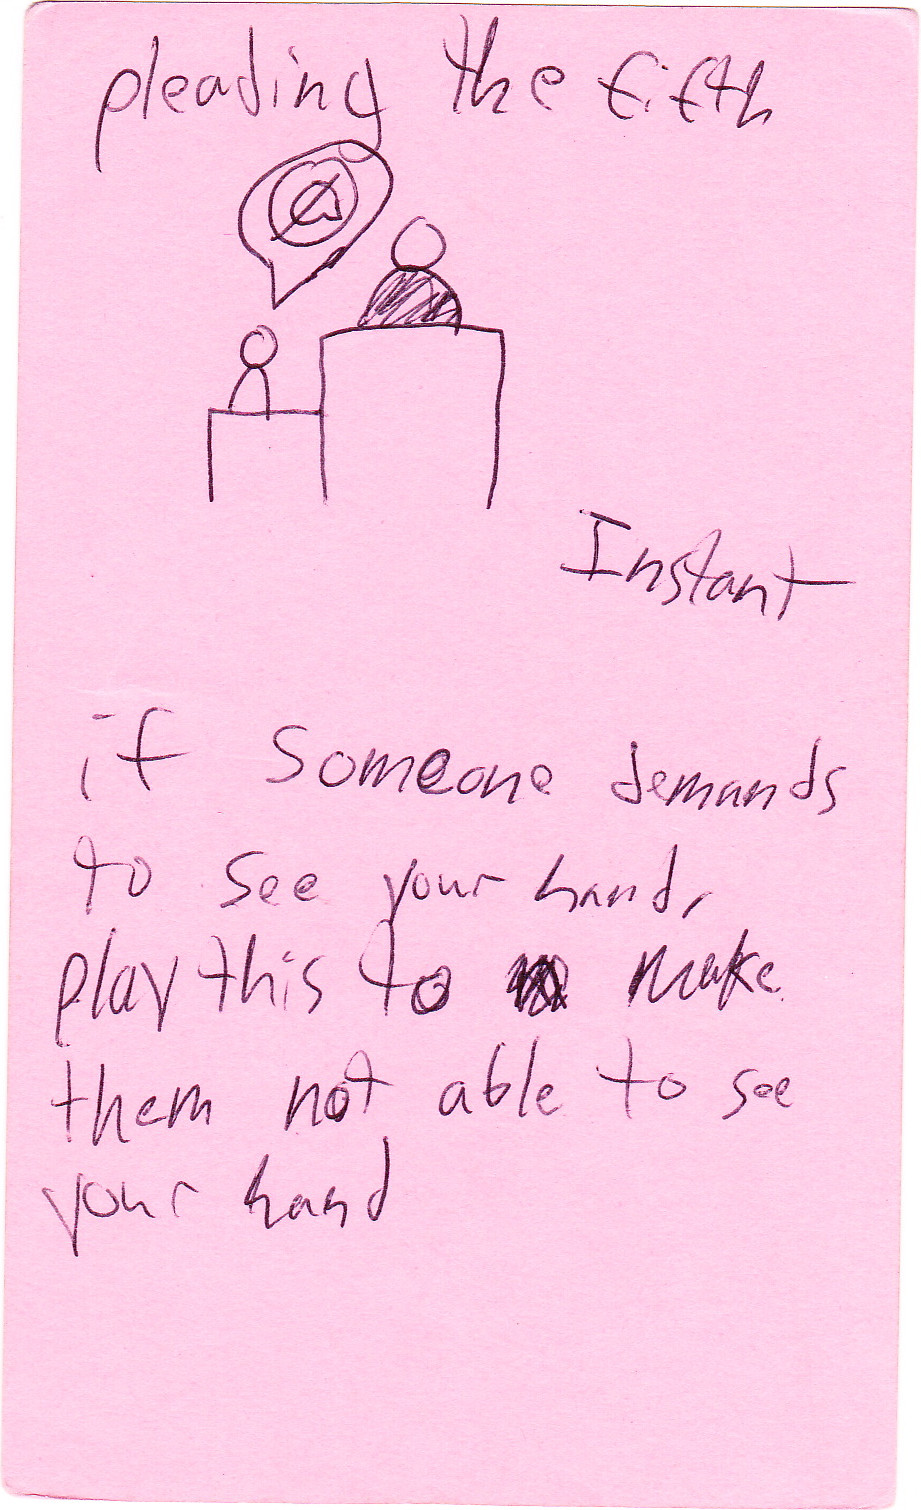 pleading the fifth
Instant
if someone demands
to see your hand,
play this to make
them not able to see
your hand